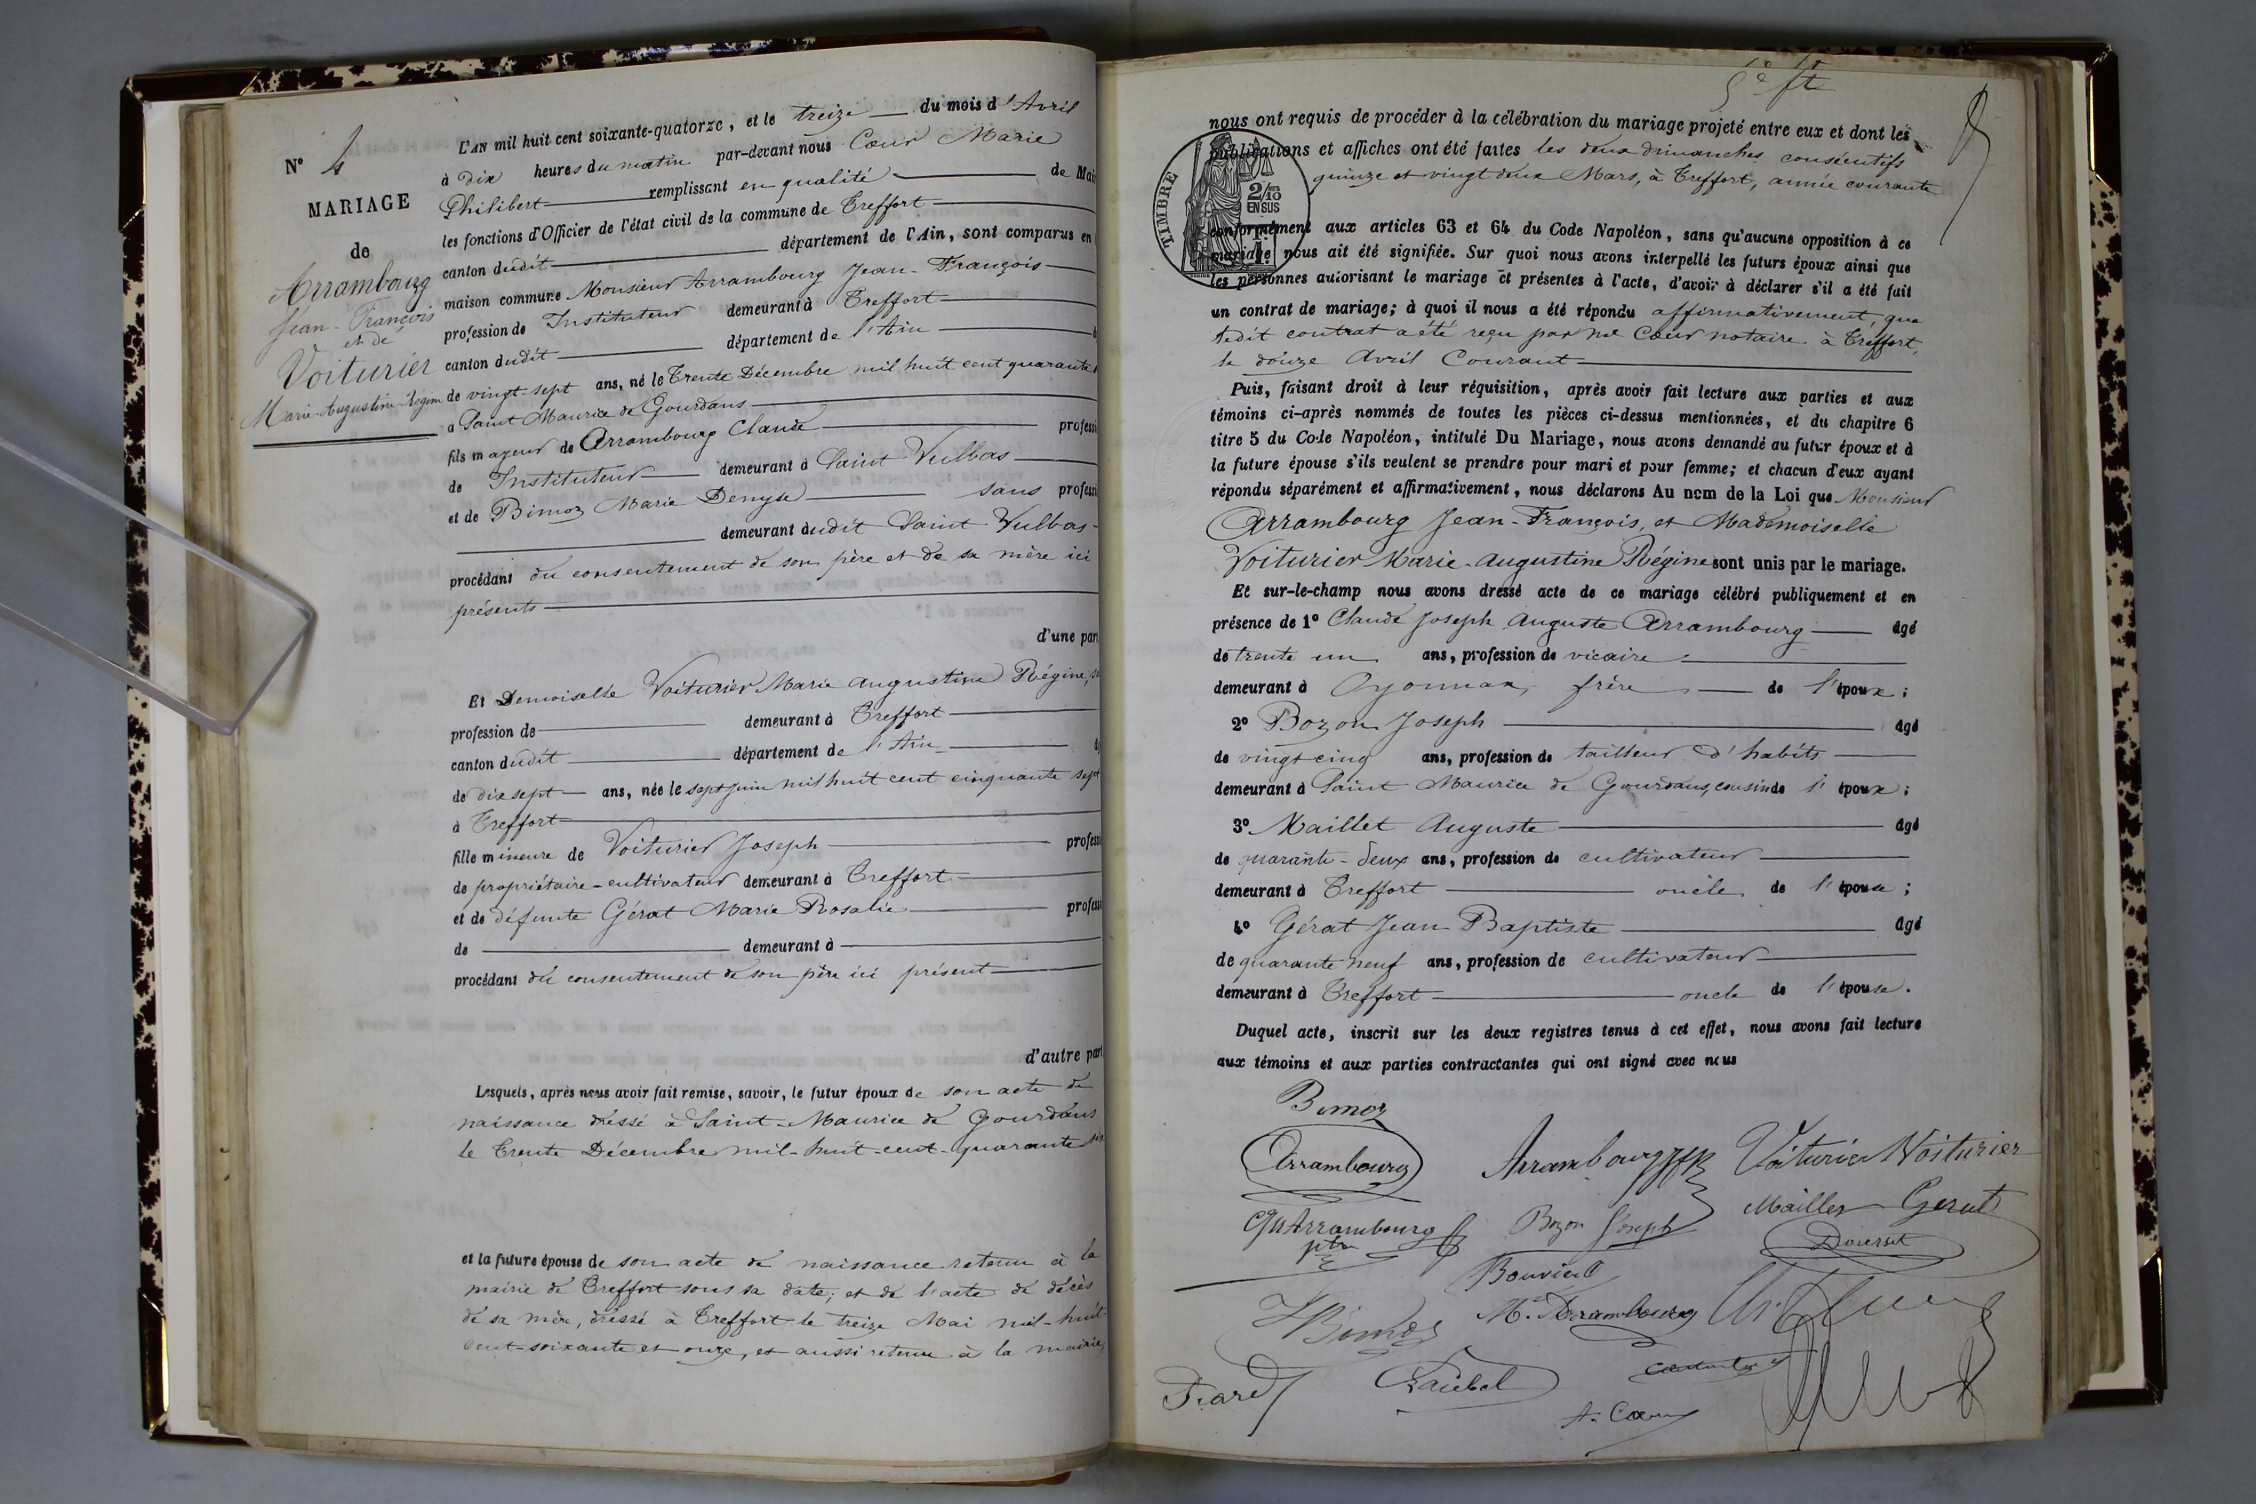 N° 4
MARIAGE
de
Arrambourg
Jean-François
et de
Voiturier
Marie-Augustine-Régine
L'AN mil huit cent soixante-quatorze, et le treize du mois d'Avril
à dix heures du matin par-devant nous Cœur Marie
Philibert remplissant en qualité de Mai
les fonctions d'Officier de l'état civil de la commune de Treffort
canton dudit département de l'Ain, sont comparus en
maison commune Monsieur Arrambourg Jean-François
profession de Instituteur demeurant à Treffort
canton dudit département de l'Ain
de vingt-sept ans, né le Trente Décembre mil huit cent quarante
à Saint Maurice de Gourdans
fils majeur de Arrambourg Claude professi
de Instituteur demeurant à Saint Vulbas
et de Bimoz Marie Denyse sans professi
demeurant àudit Saint Vulbas
procédant du consentement de son père et de sa mère ici
présents
d'une part
Et Demoiselle Voiturier Marie Augustine Régine,
profession de demeurant à Treffort
canton dudit département de l'Ain
de dix sept ans, née le sept juin mil huit cent cinquante sept
à Treffort
fille mineure de Voiturier Joseph professi
de propriétaire-cultivateur demeurant à Treffort
et de défunte Gérat Marie Rosalie professi
de demeurant à
procédant du consentement de son père ici présent
d'autre part
Lesquels, après nous avoir fait remise, savoir, le futur époux de son acte de
naissance dressé à Saint-Maurice de Gourdans
le Trente Décembre mil-huit-cent-quarante six
et la future épouse de son acte de naissance retenu à la
mairie de Treffort sous sa date; et de l'acte de décès
de sa mère, dressé à Treffort le treize Mai mil-huit
cent-soixante et onze, et aussi retenu à la mairie,
nous ont requis de procéder à la célébration du mariage projeté entre eux et dont les
publications et affiches ont été faites les deux dimanches consécutifs
quinze et vingt deux Mars, à Treffort, année courante
TIMBRE
2/10
EN SUS
conformément aux articles 63 et 64 du Code Napoléon, sans qu'aucune opposition à ce
mariage nous ait été signifiée. Sur quoi nous avons interpellé les futurs époux ainsi que
les personnes autorisant le mariage et présentes à l'acte, d'avoir à déclarer s'il a été fait
un contrat de mariage; à quoi il nous a été répondu affirmativement, que
ledit contrat a été reçu par Me Cœur notaire à Treffort,
le douze Avril Courant
Puis, faisant droit à leur réquisition, après avoir fait lecture aux parties et aux
témoins ci-après nommés de toutes les pièces ci-dessus mentionnées, et du chapitre 6
titre 5 du Code Napoléon, intitulé Du Mariage, nous avons demandé au futur époux et à
la future épouse s'ils veulent se prendre pour mari et pour femme; et chacun d'eux ayant
répondu séparément et affirmativement, nous déclarons Au nom de la Loi que Monsieur
Arrambourg Jean-François, et Mademoiselle
Voiturier Marie-Augustine Régine sont unis par le mariage.
Et sur-le-champ nous avons dressé acte de ce mariage célébré publiquement et en
présence de 1° Claude Joseph Auguste Arrambourg âgé
de trente un ans, profession de vicaire
demeurant à Oyonnax, frère de l'époux;
2° Bozon Joseph âgé
de vingt cinq ans, profession de tailleur d'habits
demeurant à Saint Maurice de Gourdans, cousin de l'époux;
3° Maillet Auguste âgé
de quarante-deux ans, profession de cultivateur
demeurant à Treffort oncle de l'épouse;
4° Gérat Jean Baptiste âgé
de quarante neuf ans, profession de cultivateur
demeurant à Treffort oncle de l'épouse.
Duquel acte, inscrit sur les deux registres tenus à cet effet, nous avons fait lecture
aux témoins et aux parties contractantes qui ont signé avec nous
Bimoz
Arrambourg Arrambourg Voiturier Voiturier
Arrambourg Bozon Joseph Maillet Gerat
ptre
Bouvier
Bimoz M. Arrambourg
Piard
A. Cœur